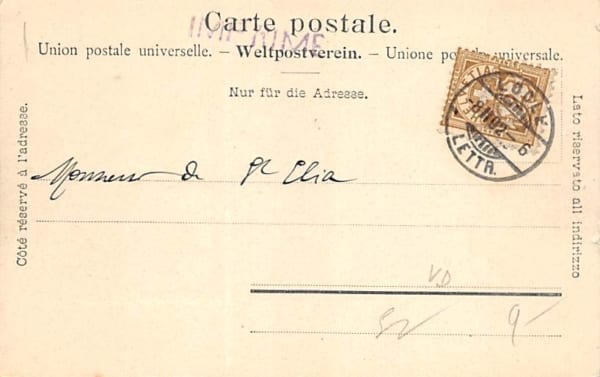 Carte postale.
IMPRIMÉ
Union postale universelle. – Weltpostverein. – Unione postale universale.
Nur für die Adresse.
Côté réservé à l'adresse.
Lato riservato all indirizzo
LETTR.
Monsieur de St Elia
VD
9-